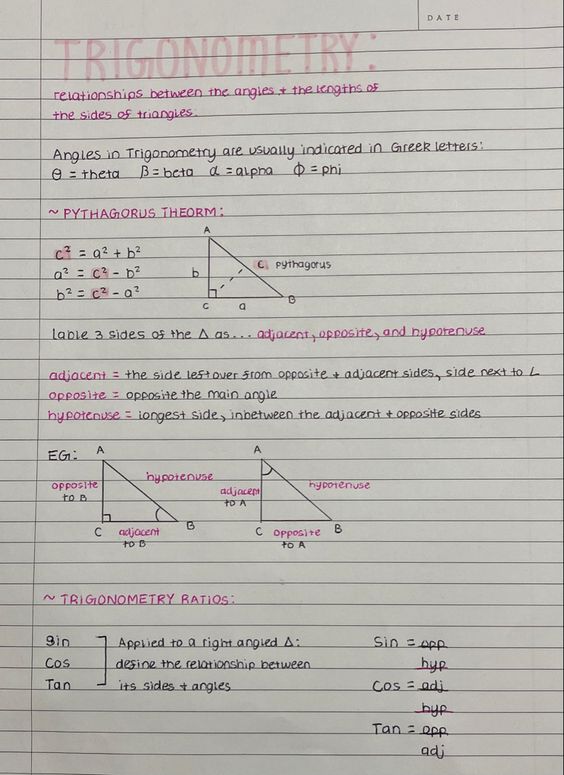 DATE
TRIGONOMETRY:
relationships between the angles + the lengths of
the sides of triangles.
Angles in Trigonometry are usually indicated in Greek letters:
θ = theta β = beta α = alpha Φ = phi
~ PYTHAGORUS THEORM:
c² = a² + b²
a² = c² - b²
b² = c² - a²
A
b
c pythagorus
C a B
lable 3 sides of the Δ as... adjacent, opposite, and hypotenuse
adjacent = the side left over from opposite + adjacent sides, side next to ∠
opposite = opposite the main angle
hypotenuse = longest side, inbetween the adjacent + opposite sides
EG:
A
opposite
to B
hypotenuse
C adjacent B
to B
A
adjacent
to A
hypotenuse
C opposite B
to A
~ TRIGONOMETRY RATIOS:
Sin
Cos
Tan
Applied to a right angled Δ:
define the relationship between
its sides + angles
Sin = opp
hyp
Cos = adj
hyp
Tan = opp
adj